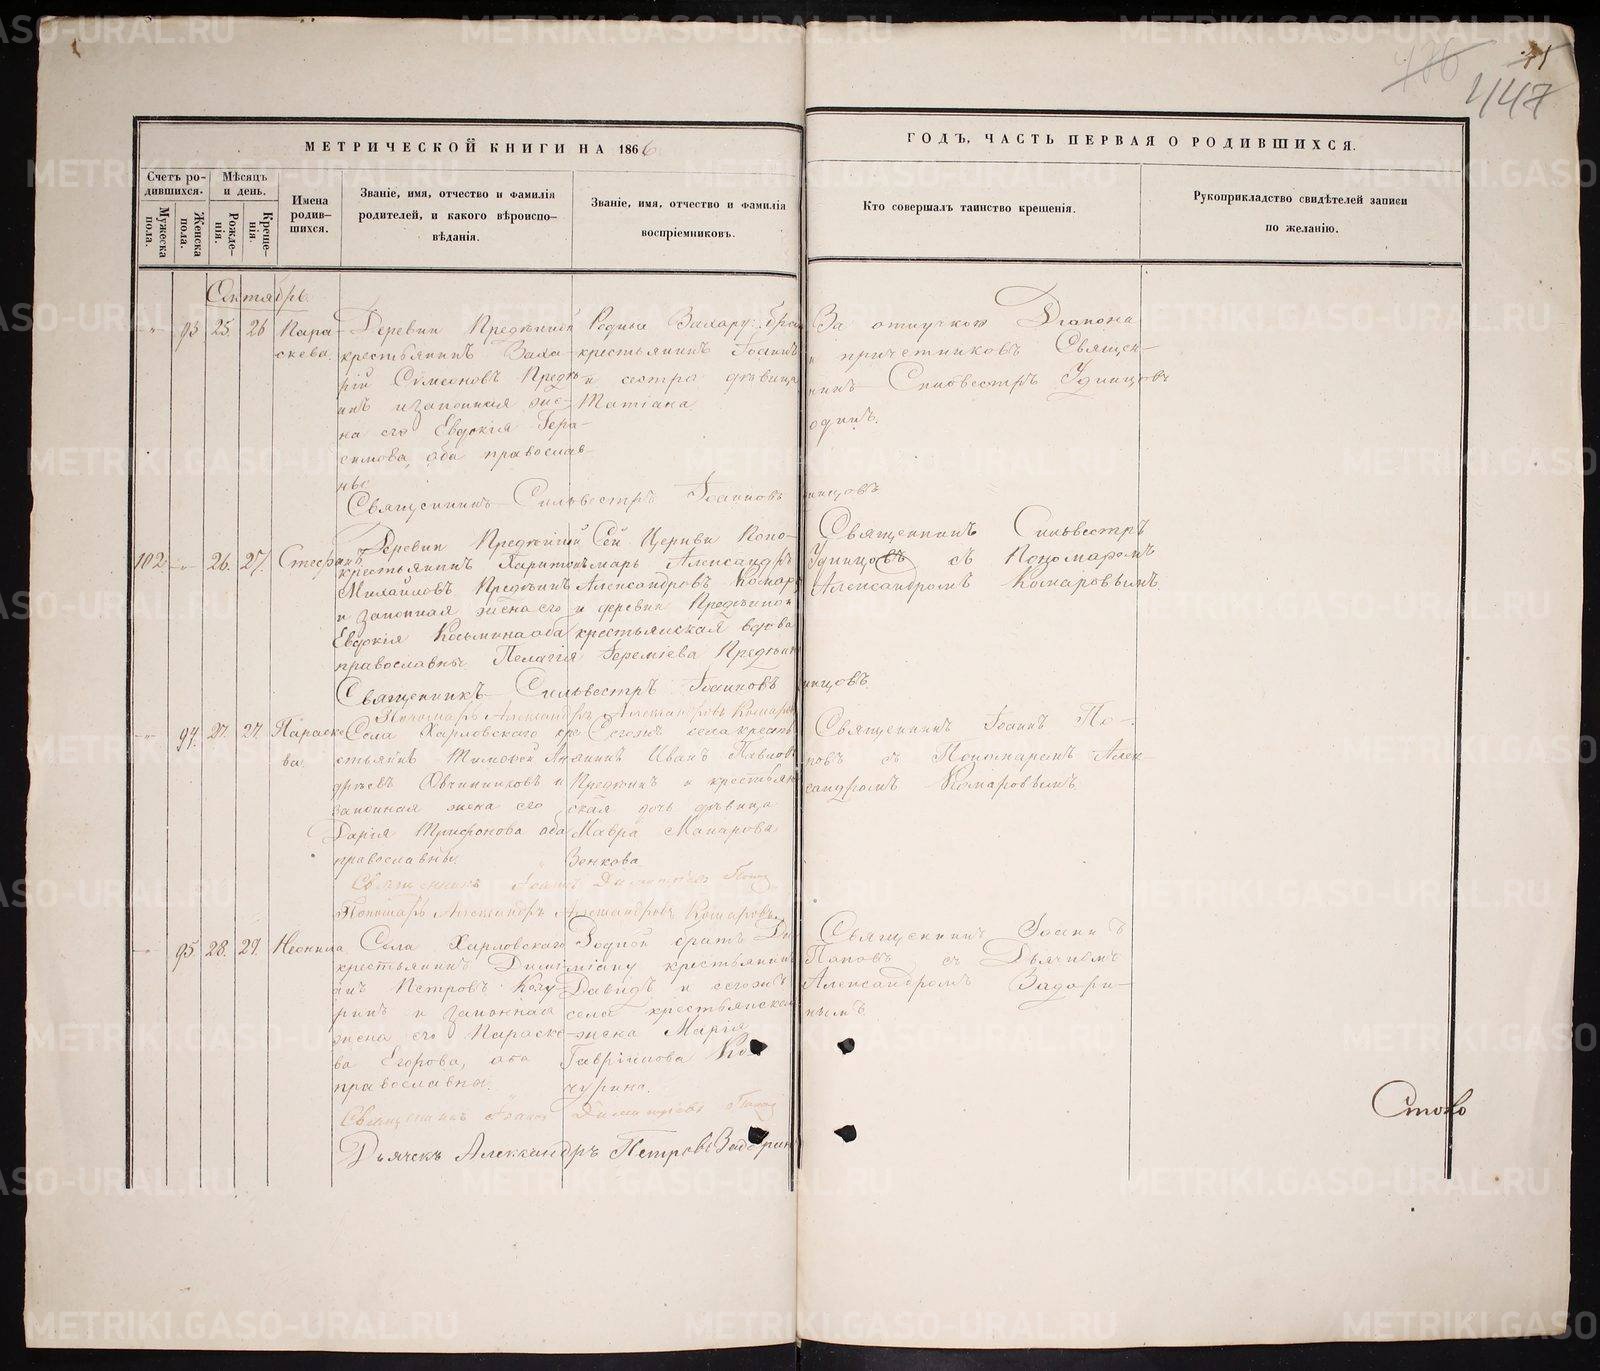 447
МЕТРИЧЕСКОЙ КНИГИ НА 1866
ГОДЪ, ЧАСТЬ ПЕРВАЯ О РОДИВШИХСЯ.
Счетъ ро-
дившихся.
Мужеска
пола.
Женска
пола.
Мѣсяцъ
и день.
Рожде-
нія.
Креще-
нія.
Имена
родив-
шихся.
Званіе, имя, отчество и фамилія
родителей, и какого вѣроиспо-
вѣданія.
Званіе, имя, отчество и фамилія
воспріемниковъ.
Кто совершалъ таинство крещенія.
Рукоприкладство свидѣтелей записи
по желанію.
Сентябрь.
93 25. 26
Пара-
скева.
Деревни
крестьянинъ Заха-
рій Симеоновъ
и законная же-
на его Евдокія Гера-
симова, оба православ-
ные
Родный Захару
крестьянинъ Іоаннъ
и сестра дѣвица
Татіана
За отлучкою Діакона
и причетниковъ Священ-
никъ Сильвестръ Удинцовъ
одинъ.
Священникъ Сильвестръ Іоанновъ
102 26. 27.
Стефанъ
Деревни
крестьянинъ Харитонъ
Михайловъ
и законная жена его
Евдокія Косьмина оба
православные
Сей Церкви Поно-
марь Александръ
Александровъ
и деревни
крестьянская вдова
Пелагія Іереміева
Священникъ Сильвестръ
Удинцовъ съ Пономаремъ
Александромъ Комаровымъ.
Священникъ Сильвестръ Іоанновъ
Пономарь Александръ Александровъ Комаровъ
94. 27. 27.
Параске-
ва.
Села Харловскаго кре-
стьянинъ Тимофей Ан-
дреевъ Овчинниковъ и
законная жена его
Дарія Трифонова оба
православные.
Сегоже села кресть-
янинъ Иванъ Павловъ
и крестьян-
ская дочь дѣвица
Мавра Макарова
Зенкова
Священникъ Іоаннъ По-
повъ съ Пономаремъ Алек-
сандромъ Комаровымъ
Священникъ Іоаннъ Димитріевъ Поповъ
Пономарь Александръ Александровъ Комаровъ
95 28. 29.
Неонила
Села Харловскаго
крестьянинъ Дамі-
анъ Петровъ Качу-
ринъ и законная
жена его Параске-
ва Егорова, оба
православные.
Родной братъ Да-
міану крестьянинъ
Давидъ и сегожъ
села крестьянская
жена Марія
Гавріилова Ка-
чурина.
Священникъ Іоаннъ
Поповъ съ Дьячкомъ
Александромъ Задори-
нымъ
Священникъ Іоаннъ Димитріевъ Поповъ
Дьячекъ Александръ Петровъ Задоринъ